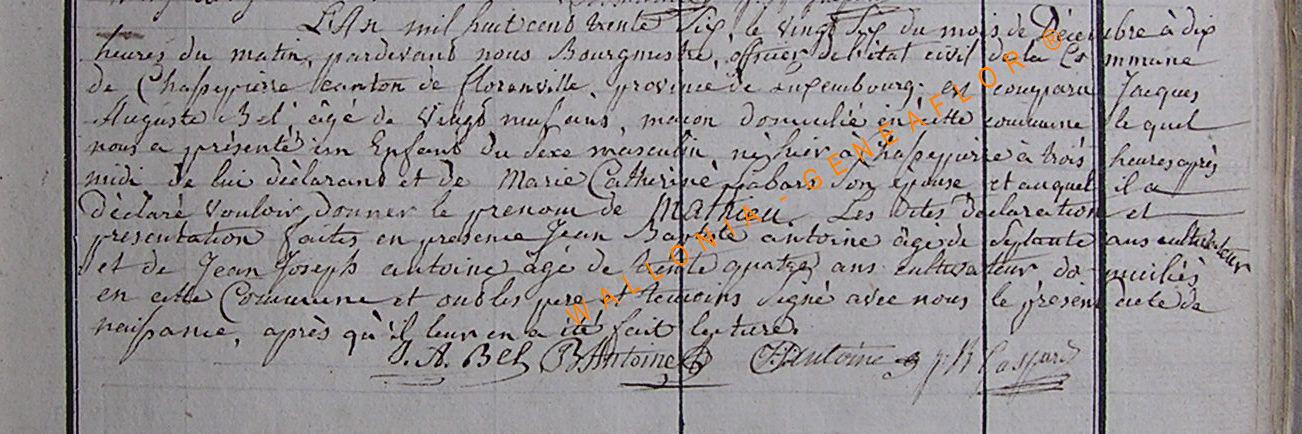 L'An mil huit cent trente Six, le vingt Six du mois de Décembre à dix
heures du matin, pardevant nous Bourgmestre, officier de l'état civil de la Commune
de Chassepierre canton de florenville, province de Luxembourg. est comparu Jacques
Auguste Bel âgé de Vingt neuf ans, maçon domicilié en cette commune lequel
nous a présenté un Enfant du Sexe masculin, né hier a chassepierre à trois heures après
midi de lui déclarant et de Marie Catherine Labar Son épouse, et auquel il a
déclaré vouloir donner le prenom de Mathieu. Les dites declaration et
presentation faites en presence Jean Baptiste antoine âgé de Septante ans cultivateur
et de Jean Joseph antoine âgé de trente quatre ans cultivateur domiciliés
en cette Commune et ont les pere et temoins Signé avec nous le présent acte de
naissance, après qu'il leur en a été fait lecture.
J. A. Bel B Antoine Antoine Gaspard
WALLONIA-GENEAFLOR ®